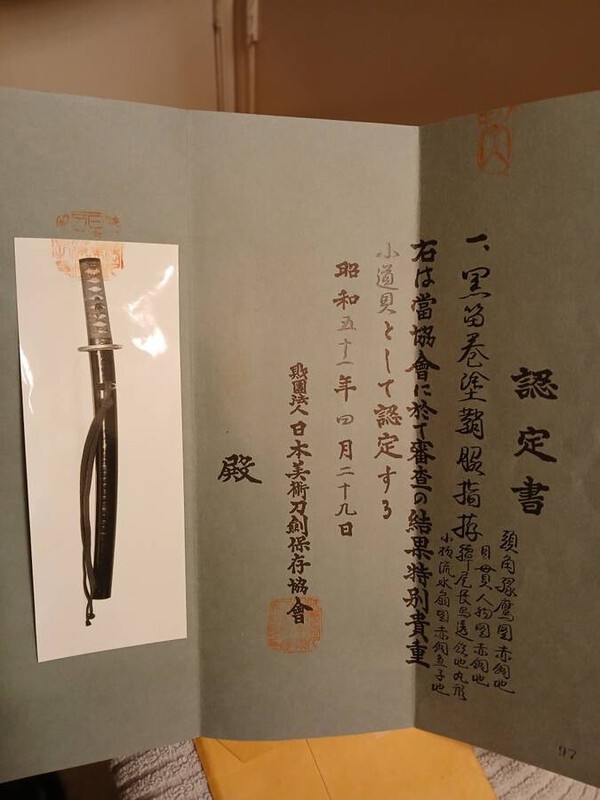 認定書
一、黒笛巻塗鞘脇指拵
頭角縁鷹図赤銅地
目貫人物図赤銅地
鐔尾長鳥透鉄地丸形
小柄流水扇図赤銅魚子地
右は當協會に於て審査の結果特別貴重
小道具として認定する
昭和五十一年四月二十九日
財團法人日本美術刀劍保存協會
殿
97